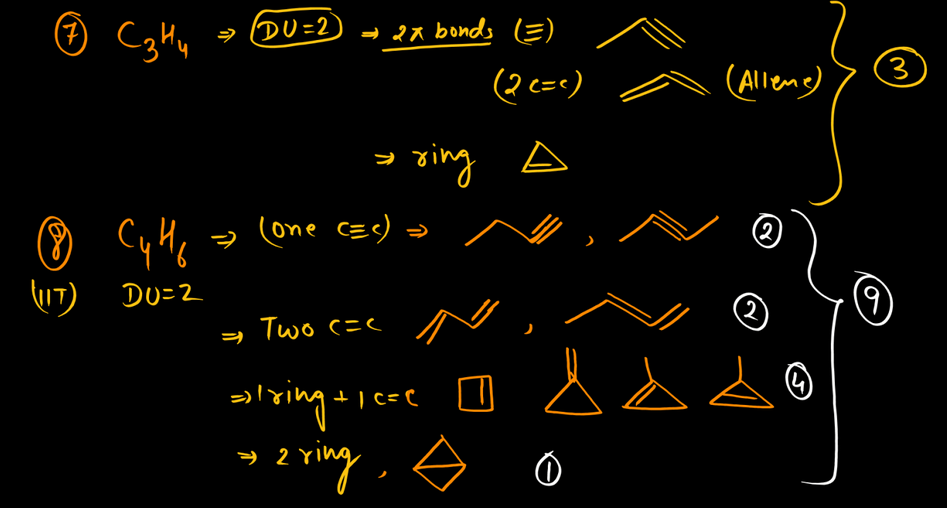 ⑦ C₃H₄ ⇒ DU=2 ⇒ 2π bonds (≡)
(2 c=c) (Allene)
③
⇒ ring
⑧ C₄H₆ ⇒ (one c≡c) ⇒ , ②
(IIT) DU=2
⑨
⇒ Two c=c , ②
⇒ 1 ring + 1 c=c ④
⇒ 2 ring, ①